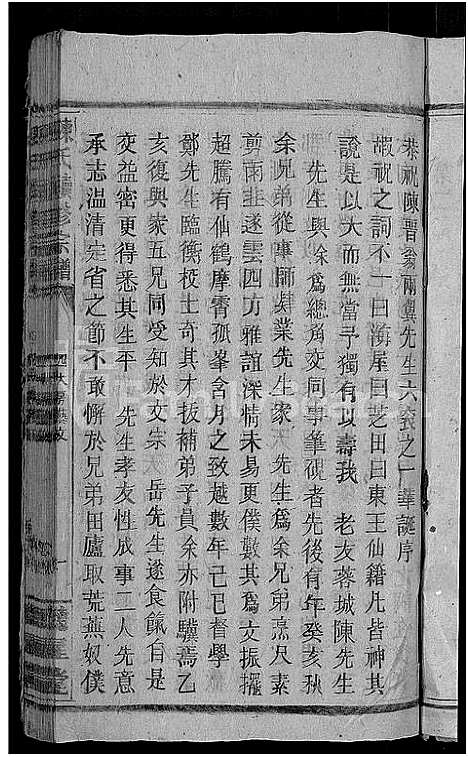 恭祝陳晋翁兩翼先生六袠之一華誕序
嘏祝之詞不一曰海屋曰芝田曰東王仙籍凡皆神其
說是以大而無當予獨有以壽我 老友蓉城陳先生
先生與余爲總角交同事筆硯者先後有年癸亥秋
余兄弟從事師肆業先生家 先生爲余兄弟烹尺素
剪雨韭遂雲四方雅誼深情未易更僕數其爲文振擢
超騰有仙鶴摩霄孤峯含月之致越數年己巳督學
鄭先生臨衡校士奇其才拔補弟子員余亦附驥焉乙
亥復與家五兄同受知於文宗 岳先生遂食餼自是
交益密更得悉其生平 先生孝友性成事二人先意
承志温清定省之節不敢懈於兄弟田廬取荒蕪奴僕
陳氏續修宗譜